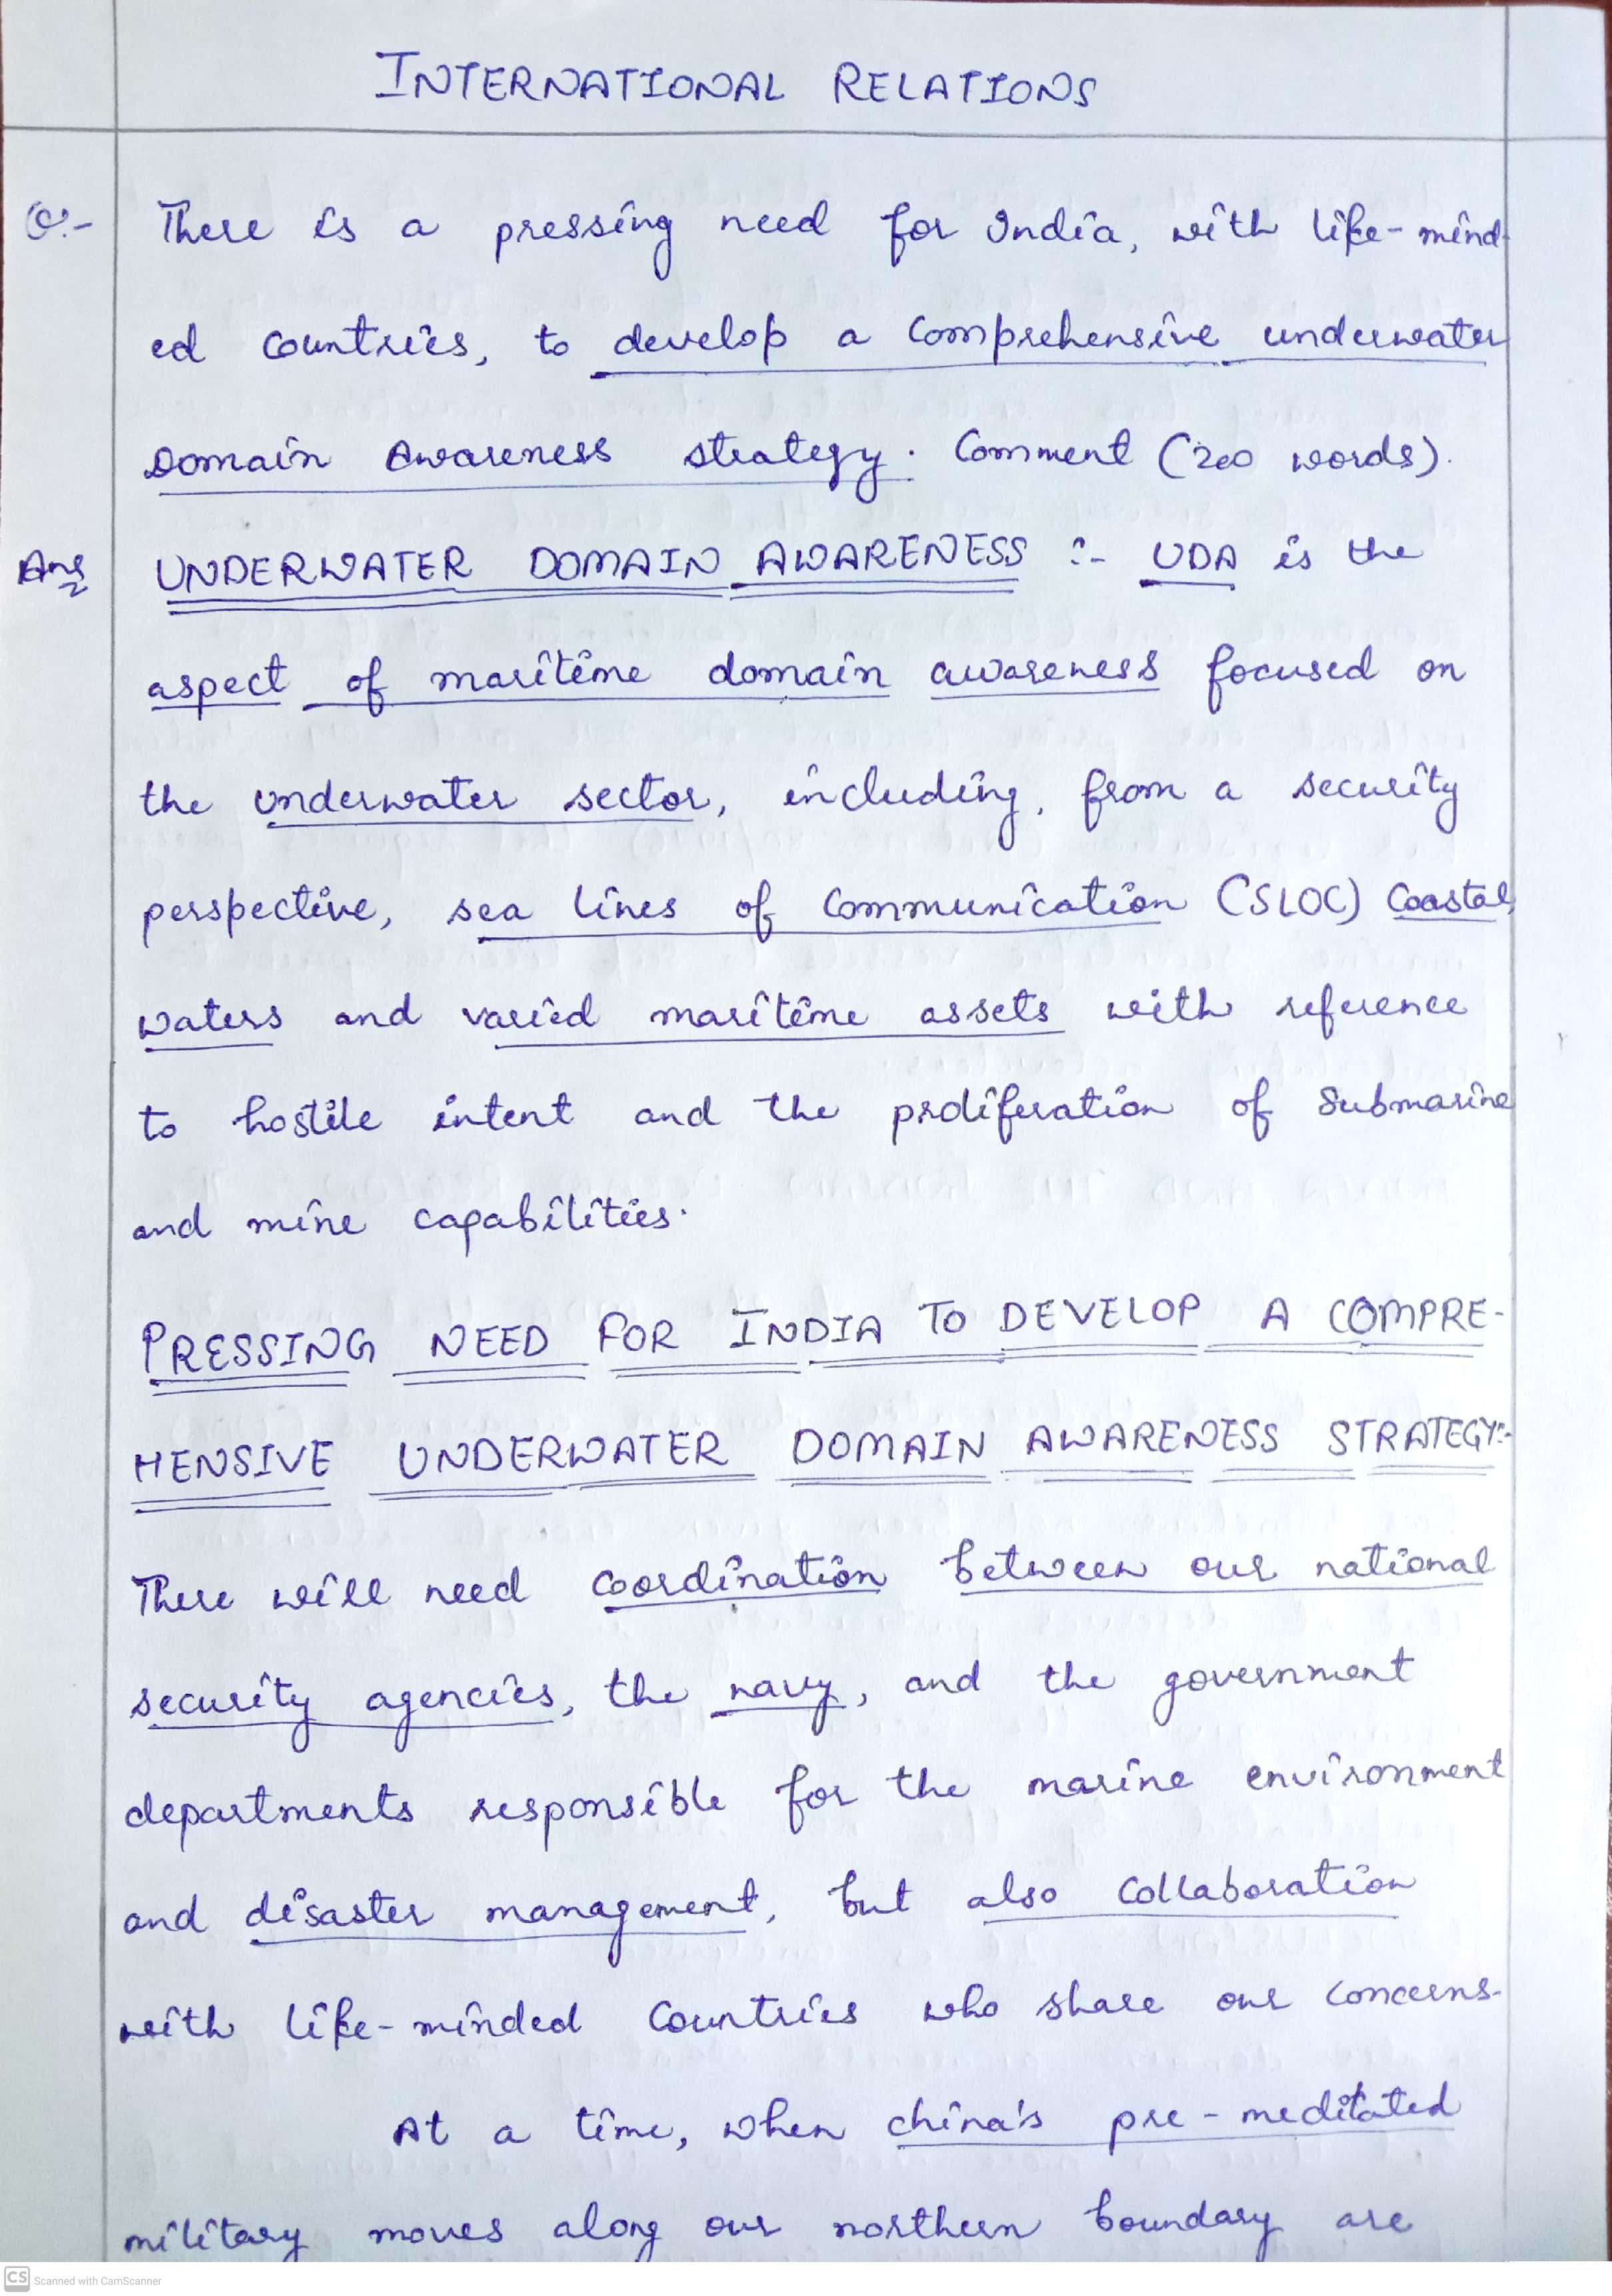 INTERNATIONAL RELATIONS
Q:- There is a pressing need for India, with like-mind-
ed countries, to develop a comprehensive underwater
Domain Awareness strategy. Comment (200 words).
Ans UNDERWATER DOMAIN AWARENESS :- UDA is the
aspect of maritime domain awareness focused on
the underwater sector, including, from a security
perspective, sea lines of communication (SLOC) Coastal
waters and varied maritime assets with reference
to hostile intent and the proliferation of Submarine
and mine capabilities.
PRESSING NEED FOR INDIA TO DEVELOP A COMPRE-
HENSIVE UNDERWATER DOMAIN AWARENESS STRATEGY:-
There will need coordination between our national
security agencies, the navy, and the government
departments responsible for the marine environment
and disaster management, but also collaboration
with like-minded countries who share our concerns.
At a time, when china's pre-meditated
military moves along our northern boundary are
CS Scanned with CamScanner